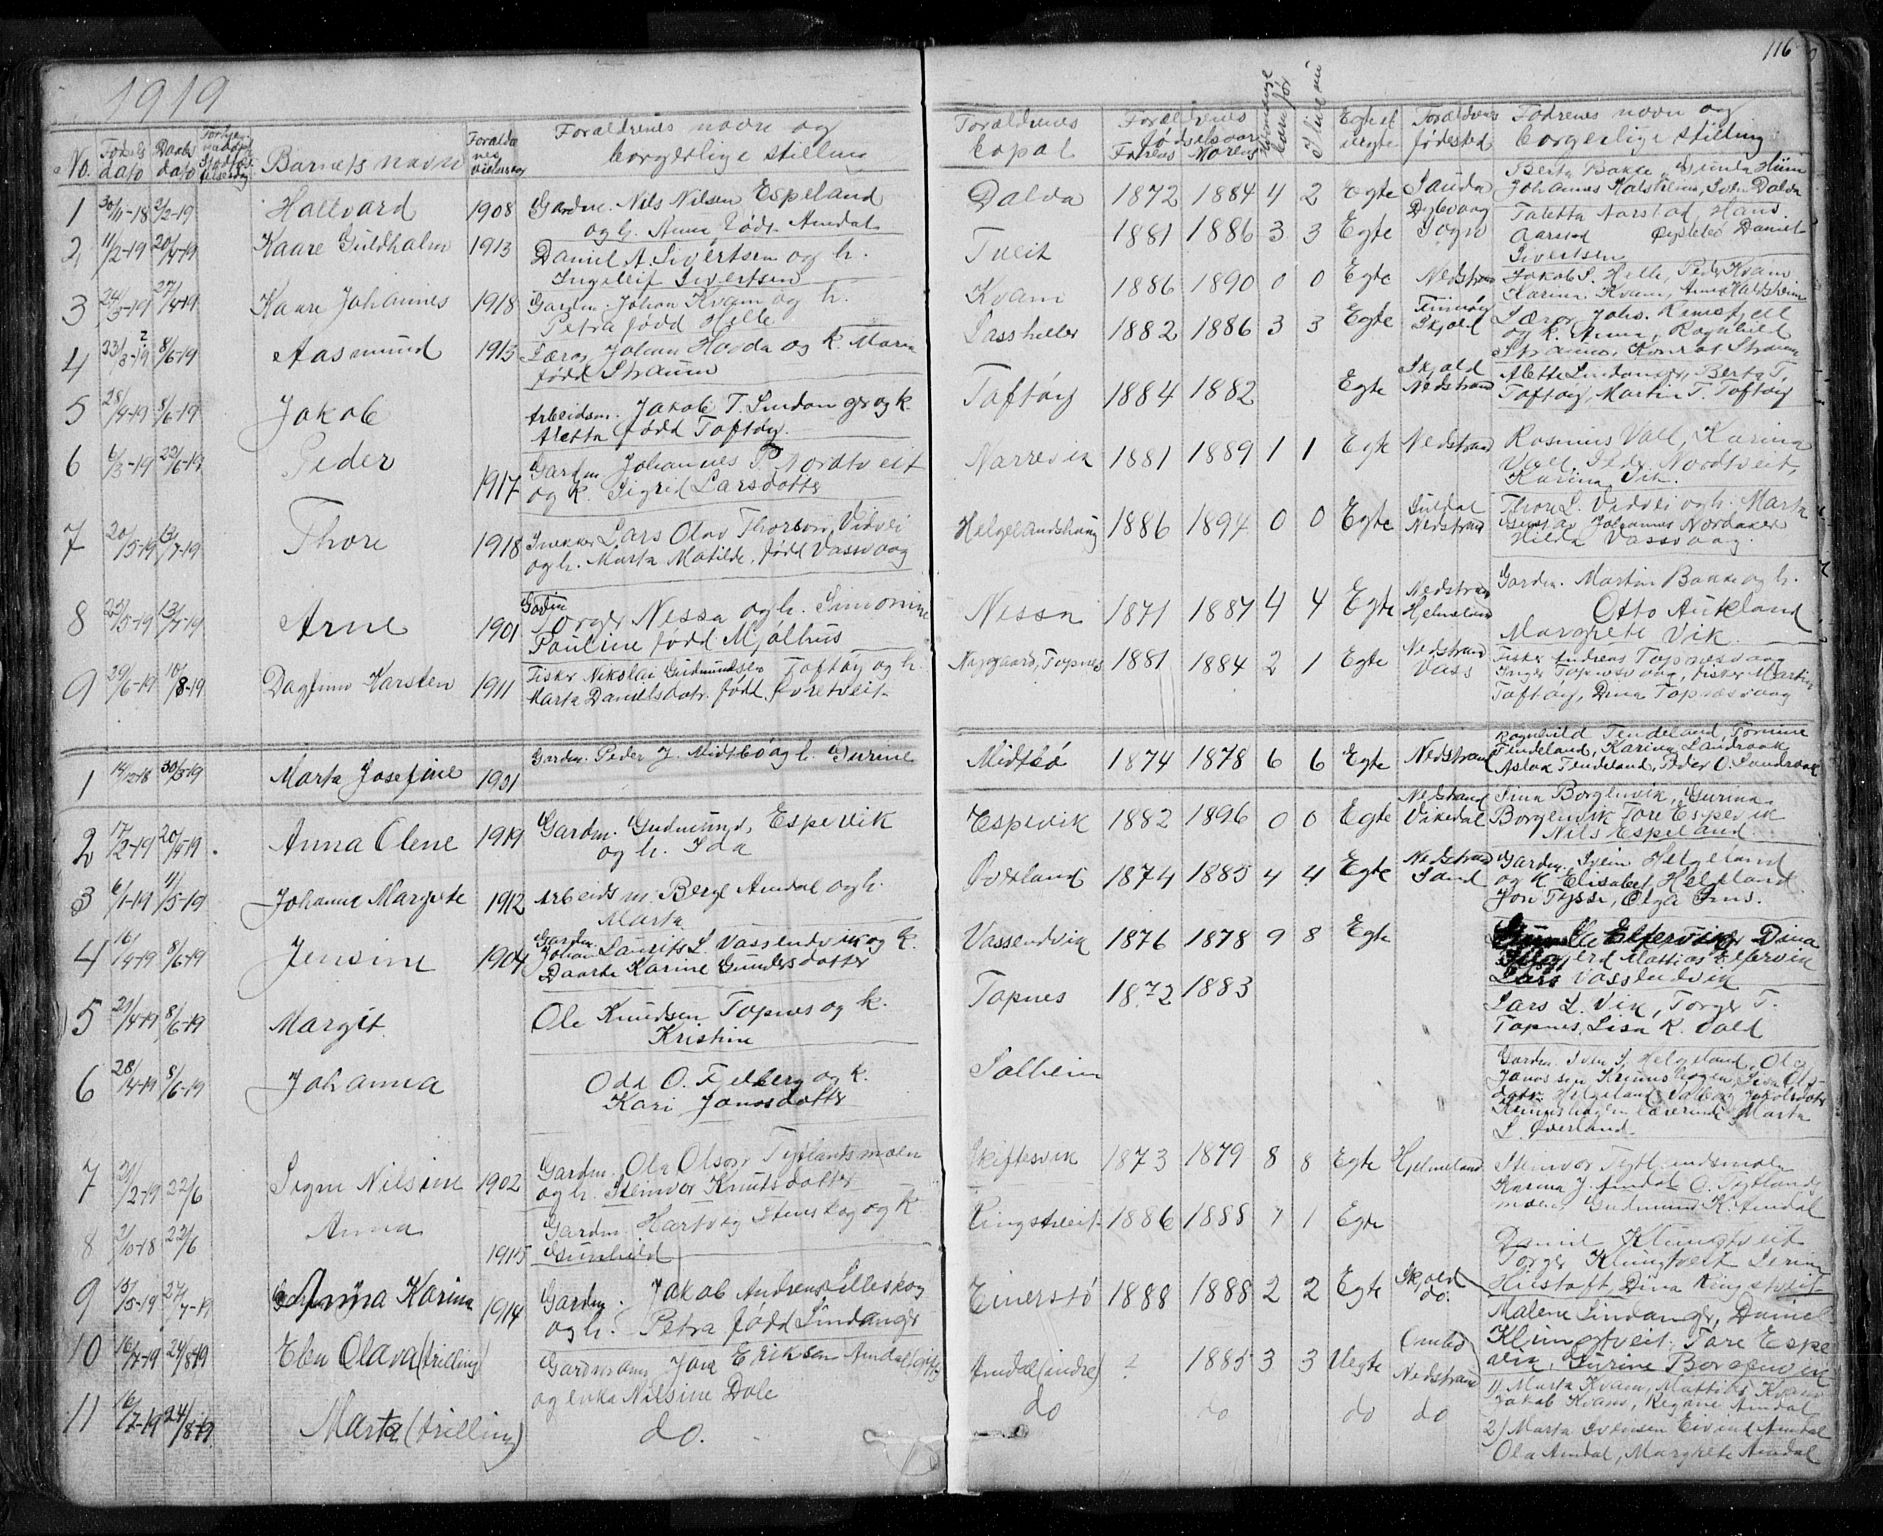 116
1919
No. Fødselsdato Daabsdato Barnets navn Forældrenes vielsesaar Forældrenes navn og borgerlige stilling
Forældrenes bopæl Forældrenes fødselsaar Farens Morens Egte el uegte Forældrenes fødested Fadrenes navn og borgerlige stilling
1 30/11-18 2/2-19 Haltvard 1908 Gardm. Nils Nilsen Espeland
og h. Anna født Amdal
Dalda 1872 1884 4 2 Egte Sauda
Berta Bakke, Gunda Hiim
Johannes Halsheim, Sven Dalda
2 11/2-19 20/4-19 Kaare Guldholm 1913 Daniel A. Sivertsen og h.
Ingeleif Sivertsen
Tveit 1881 1886 3 3 Egte Sogn
Taletta Aarstad, Hans
Aarstad Øysteleö Daniel
Sivertsen
3 24/3-19 27/4-19 Kaare Johannes 1918 Gardm. Johan Kvam og h.
Petra født Helle
Kvam 1886 1890 0 0 Egte Nedstrand
Jakob S. Helle, Peder Kvam
Karina Kvam, Anna Halsheim
4 23/3-19 8/6-19 Aasmund 1913 Lærer Johan Hovda og k. Maria
født Straum
Lassheller 1882 1886 3 3 Egte Finnöy Skjold
Lærer Johs. Ramsfjell
og k. Anna, Ragnhild
Straum, Konrad Straum
5 28/4-19 8/6-19 Jakob Arbeidsm. Jakob T. Lindanger og k.
Aletta født Toftöy.
Toftöy 1884 1882 Egte Skjold Nedstrand
Alette Lindanger, Berta T.
Toftöy, Martin T. Toftöy
6 6/3-19 22/6-19 Peder 1917 Gardm. Johannes P. Nordtveit
og k. Sigrid Larsdotter
Narrevik 1881 1889 1 1 Egte Nedstrand
Rasmus Vall, Karina
Vall, Peder Nordtveit,
Karina Vik.
7 20/5-19 13/7-19 Thore 1918 Snekker Lars Olav Thorsen Vidvei
og h. Marta Matilde, født Vassvaag
Helgelandshaug 1886 1894 0 0 Egte Suldal Nedstrand
Thore L. Vidvei og h. Marta
Gusta, Johannes Nordaker
Hilda Vassvaag.
8 25/5-19 13/7-19 Arne 1901 Gardm. Torger Nessa og h. Simonine
Pauline født Mjölhus
Nessa 1871 1887 4 4 Egte Nedstrand Hjelmeland
Gardm. Martin Bakke og h.
Otto Aukland
Margrete Vik.
9 29/6-19 10/8-19 Dagfinn Karsten 1911 Fisker Nikolai Gudmundsen Toftöy og h.
Marta Danielsdotr. født Øvretveit
Nygaard, Topnes 1881 1884 2 1 Egte Nedstrand Vats
Fisker Andreas Topnesvaag
Inger Topnesvaag, Fisker Martin
Toftöy, Dina Topnesvaag
1 14/12-18 30/3-19 Marta Josefine 1901 Gardm. Peder J. Midtbö og h. Gurine
Midtbö 1874 1878 6 6 Egte Nedstrand
Ragnhild Tendeland, Tomine
Tendeland, Karina Sandraak
Aslak Tendeland, Peder O. Sandraak
2 17/2-19 20/4-19 Anna Olene 1919 Gardm. Gudmund Espevik
og h. Ida
Espevik 1882 1896 0 0 Egte Nedstrand Vikedal
Sina Borgenvik, Gurina
Borgenvik Tore Espevik
Nils Espeland
3 6/1-19 4/5-19 Johanne Margrete 1912 Arbeidsm. Berge Amdal og h.
Marta
Øverland 1874 1885 4 4 Egte Nedstrand Sand
Gardm. Svein Helgeland
og k. Elisabet Helgeland
Jon Tysse, Olga Ims.
4 16/4-19 8/6-19 Jensine 1904 Gardm. Johan Laurits L. Vassendvik og k.
Daarte Karine Gundersdotter
Vassendvik 1876 1878 9 8 Egte
Elfervik, Dina
Mattias Elfervik
Lars Vassendvik
5 29/4-19 8/6-19 Margit Ole Knudsen Topnes og k.
Kristine
Topnes 1872 1883
Lars L. Vik, Torger T.
Topnes, Lisa K. Vold
6 28/4-19 8/6-19 Johanna Odd O. Fjelberg og k.
Kari Janosdotter
Solheim
Gardm. Sven S. Helgeland, Ole
Janossen Krunushagen,
Helgeland, Valborg Jakobsdotter
Krunushagen lærerinde Marta
L. Øverland.
7 21/2-19 22/6 Signe Nilsine 1902 Gardm. Ola Olsen Tytlandsmoen
og h. Steinvor Knutsdotter
Skiftesvik 1873 1879 8 8 Egte Hjelmeland
Steinvor Tytlandsmoen
Karina J. Amdal O. Tytlands
moen Gudmund K. Amdal
8 2/10-18 22/6 Anna 1915 Gardm. Hartvig Stenskog og k.
Gunhild
Ringstveit 1886 1888 1 1 Egte
Daniel Klungtveit
Torger Klungtveit Serine
Hilstoft, Dina Ringstveit
9 15/5-19 27/7-19 Anna Karina 1914 Gardm. Jakob Andreas Lilleskog
og h. Petra født Lindanger
Einerstö 1888 1888 2 2 Egte Skjold do.
Malene Lindanger, Daniel
Klungtveit, Tore Espe
vik, Gurine Borgenvik
10 16/7-19 24/8-19 Elen Olava (trilling) Gardmann Jone Eriksen Amdal (gift)
og enka Nilsine Dale
Amdal (indre) ? 1885 3 3 Uegte Ombo Nedstrand
1) Marta Kvam, Mattias Kvam
Jakob Kvam, Regine Amdal
11 16/7-19 24/8-19 Marta (trilling) do.
do do do do
2) Marta Svensen Eivind Amdal
Ola Amdal, Margrete Amdal